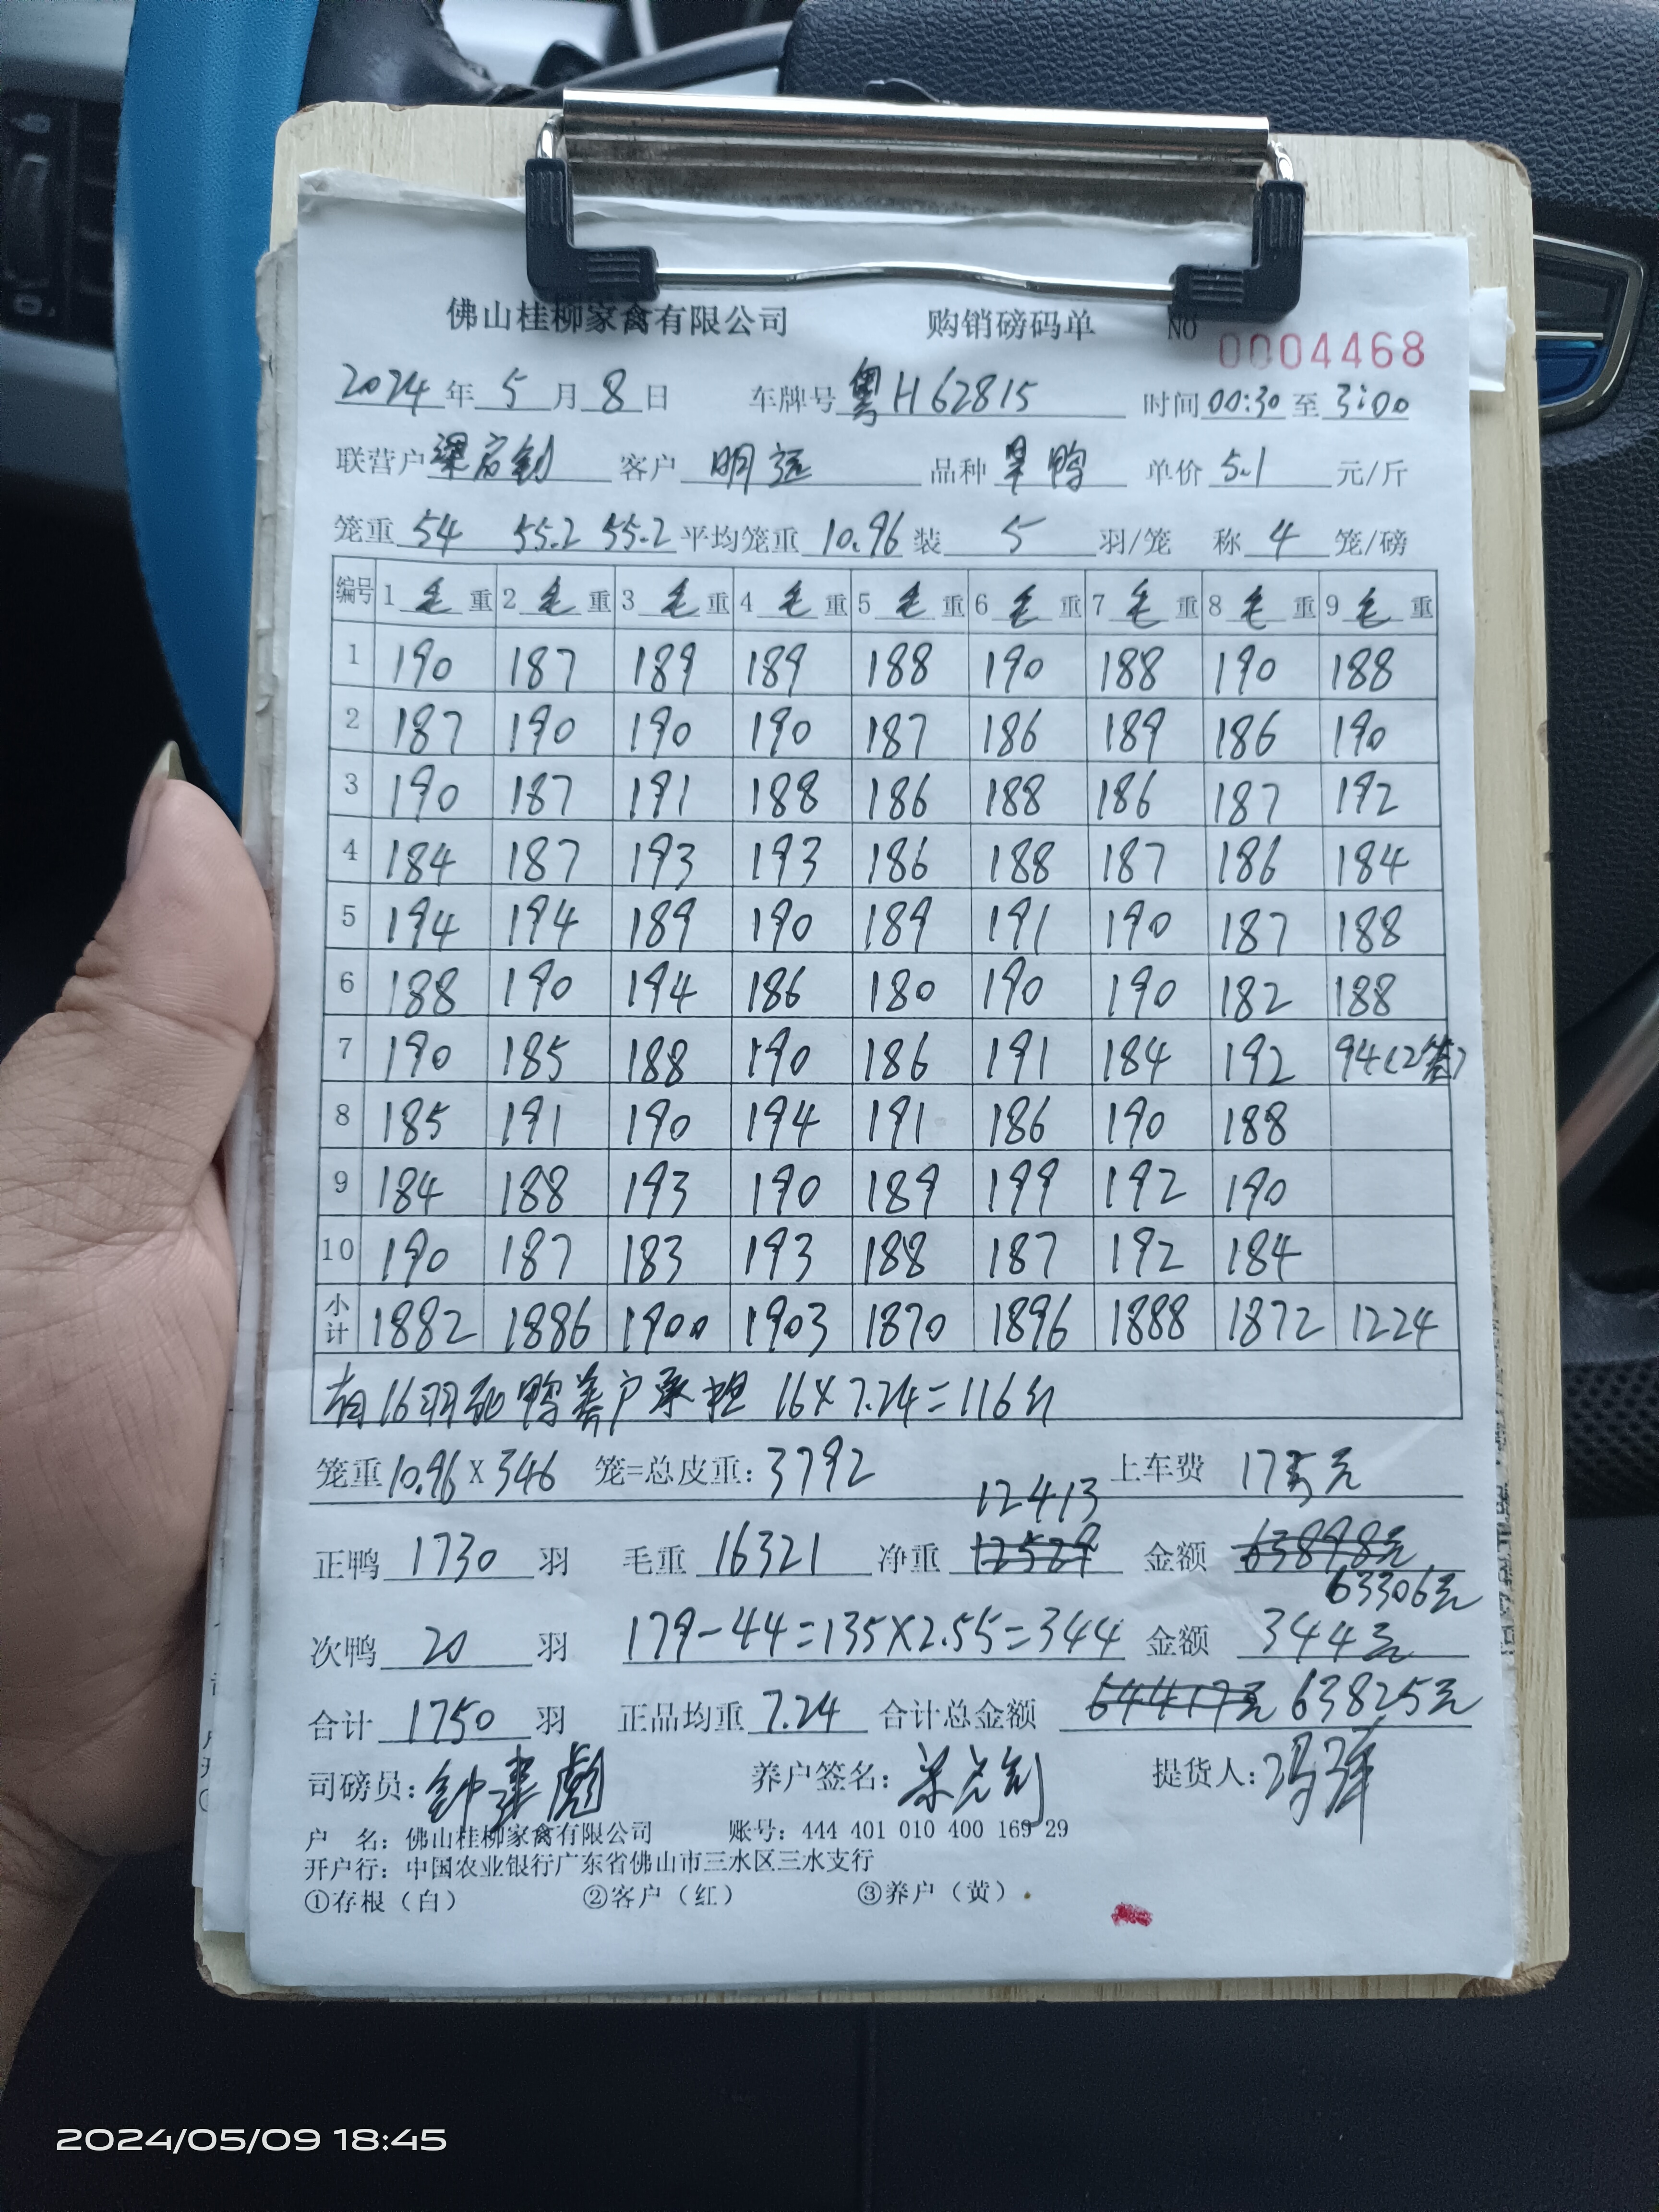 佛山桂柳家禽有限公司 购销磅码单 NO 0004468
2024年5月8日 车牌号 粤H62815 时间 00:30 至 3:00
联营户 梁启钊 客户 明远 品种 旱鸭 单价 5.1 元/斤
笼重 54 55.2 55.2 平均笼重 10.96 装 5 羽/笼 称 4 笼/磅
编号 1 毛 重 2 毛 重 3 毛 重 4 毛 重 5 毛 重 6 毛 重 7 毛 重 8 毛 重 9 毛 重
1 190 187 189 189 188 190 188 190 188
2 187 190 190 190 187 186 189 186 190
3 190 187 191 188 186 188 186 187 192
4 184 187 193 193 186 188 187 186 184
5 194 194 189 190 189 191 190 187 188
6 188 190 194 186 180 190 190 182 188
7 190 185 188 190 186 191 184 192 94(2笼)
8 185 191 190 194 191 186 190 188
9 184 188 193 190 189 199 192 190
10 190 187 183 193 188 187 192 184
小计 1882 1886 1900 1903 1870 1896 1888 1872 1224
有16羽死鸭养户承担 16×7.24=116斤
笼重 10.96 × 346 笼=总皮重: 3792 上车费 175元
12413
正鸭 1730 羽 毛重 16321 净重 12529 金额 63898元
63306元
次鸭 20 羽 179-44=135×2.55=344 金额 344元
合计 1750 羽 正品均重 7.24 合计总金额 64417元 63825元
司磅员: 钟建彪 养户签名: 梁启钊 提货人: 冯
户 名: 佛山桂柳家禽有限公司 账号: 444 401 010 400 169 29
开户行: 中国农业银行广东省佛山市三水区三水支行
①存根(白) ②客户(红) ③养户(黄)
2024/05/09 18:45